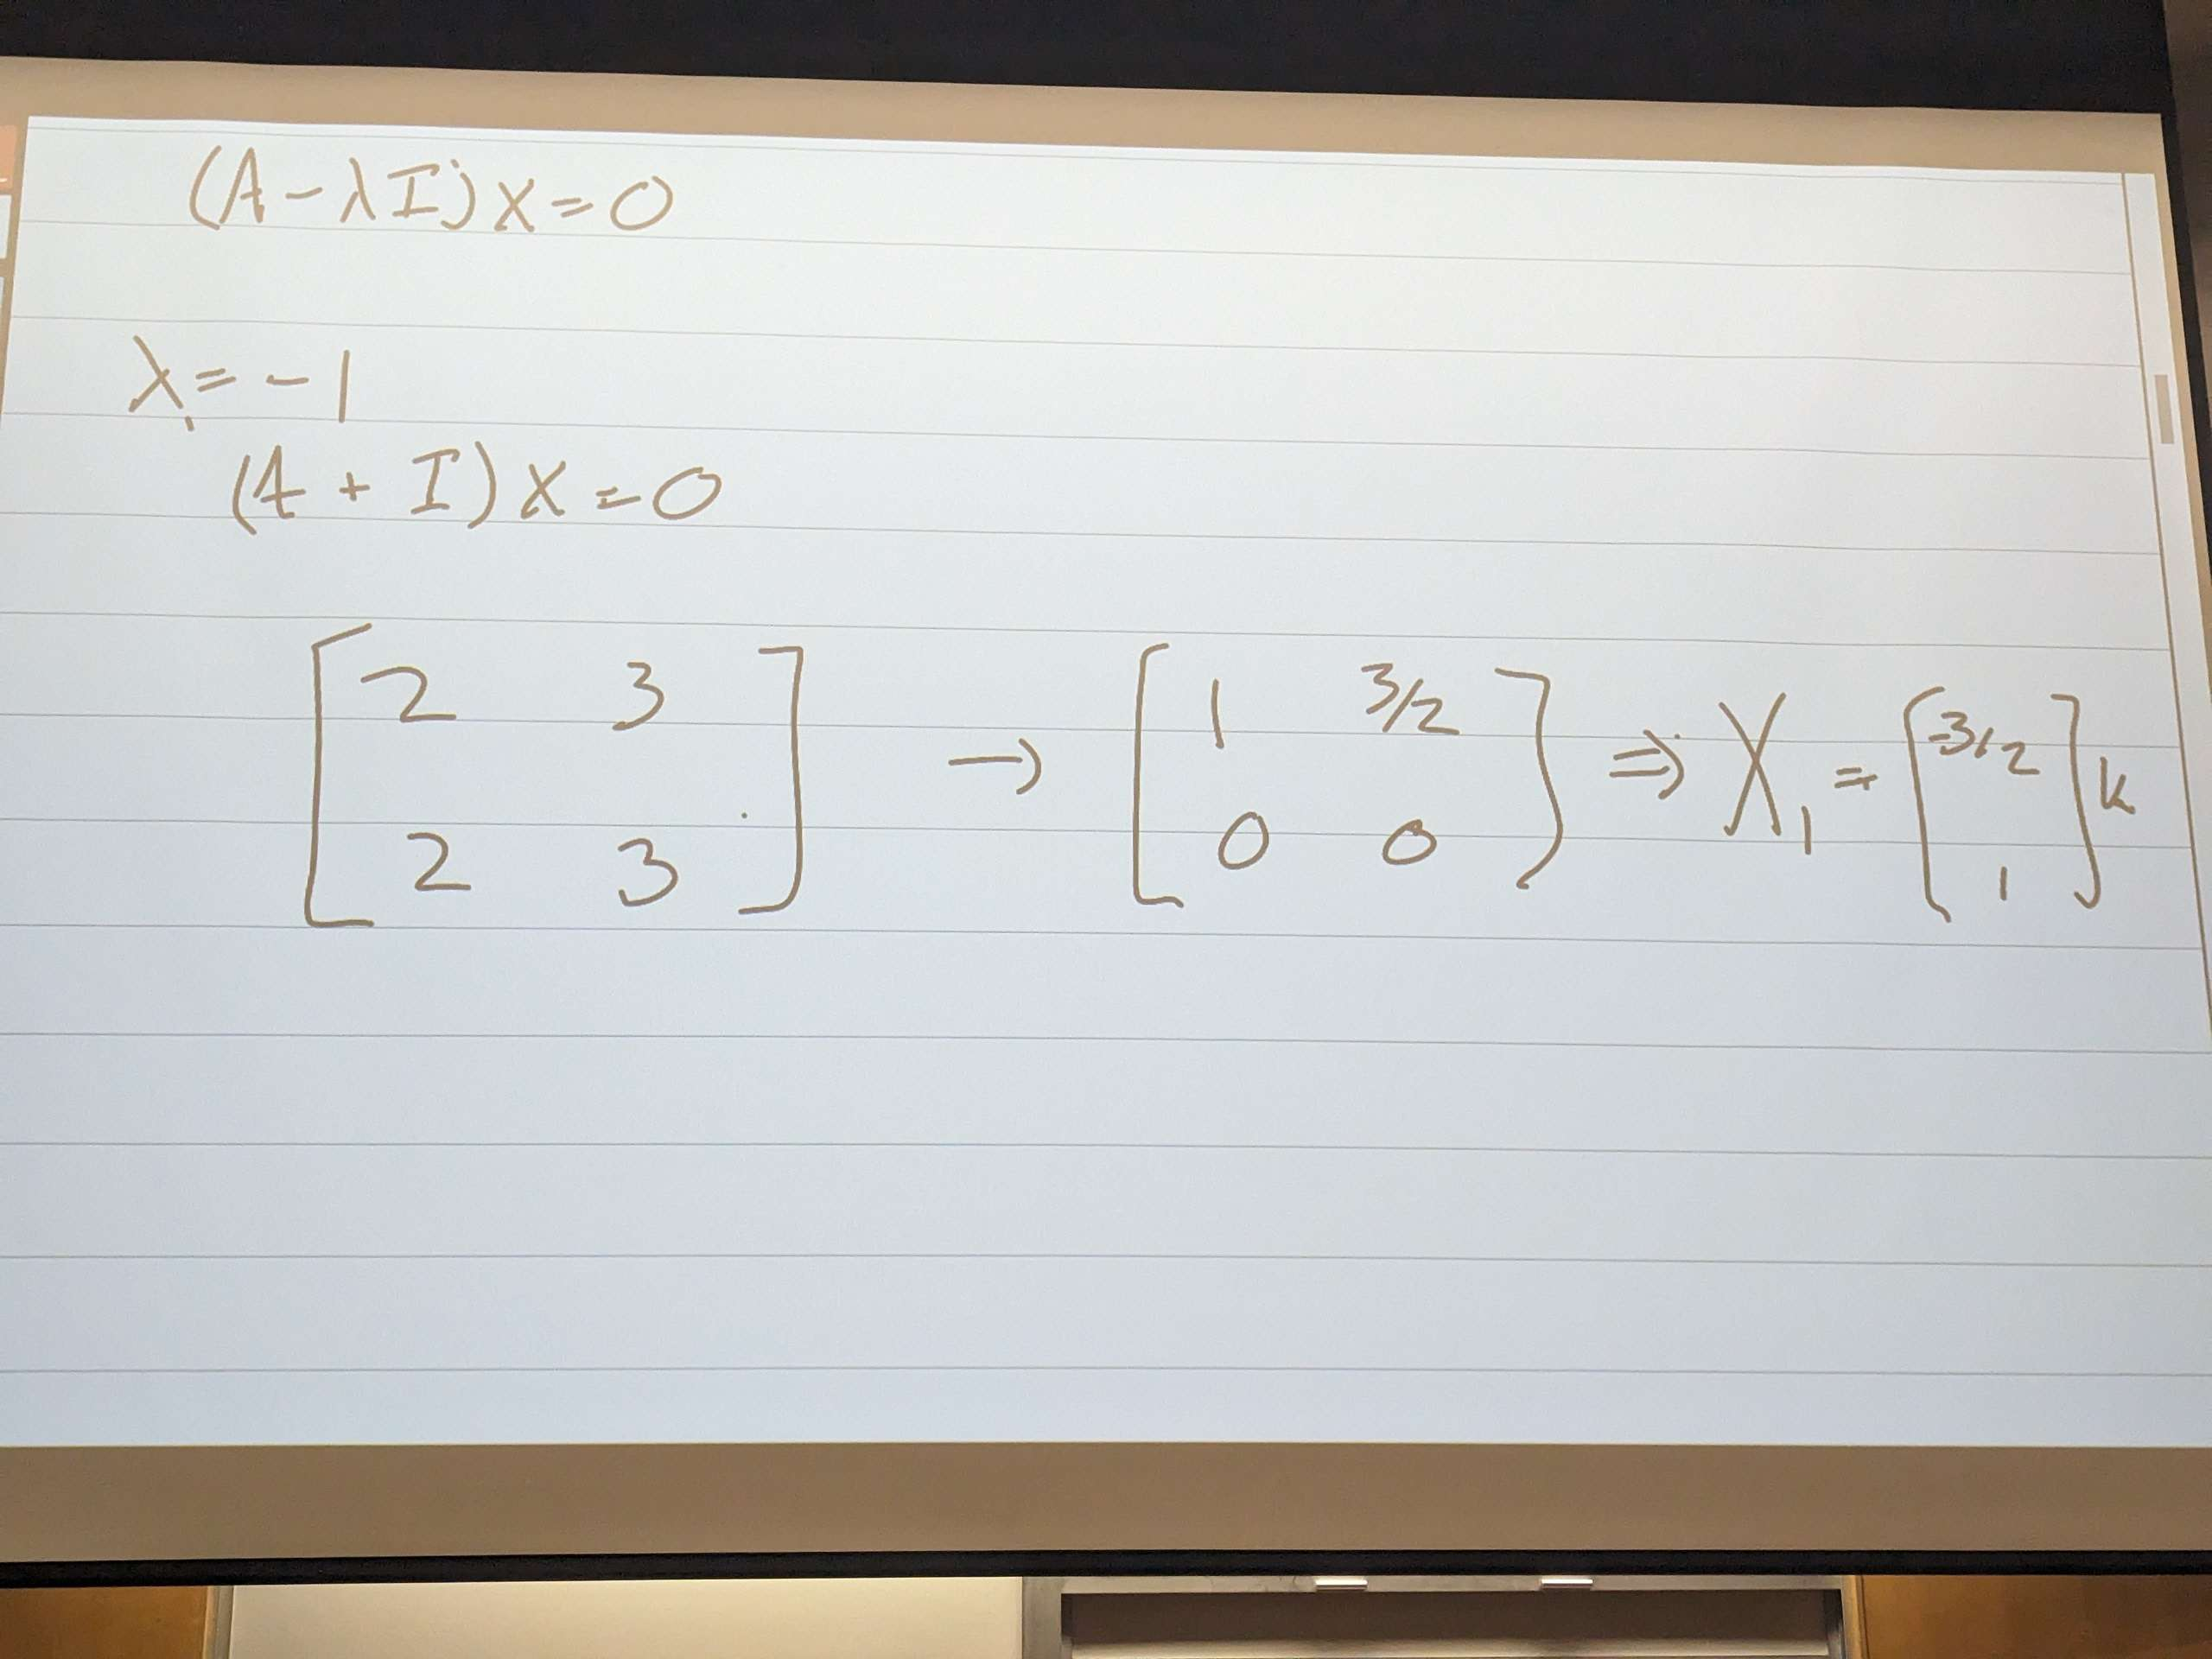 (A-λI)X=0
λ₁=-1
(A+I)X=0
[2 3; 2 3] → [1 3/2; 0 0] ⇒ X₁ = [-3/2; 1] k